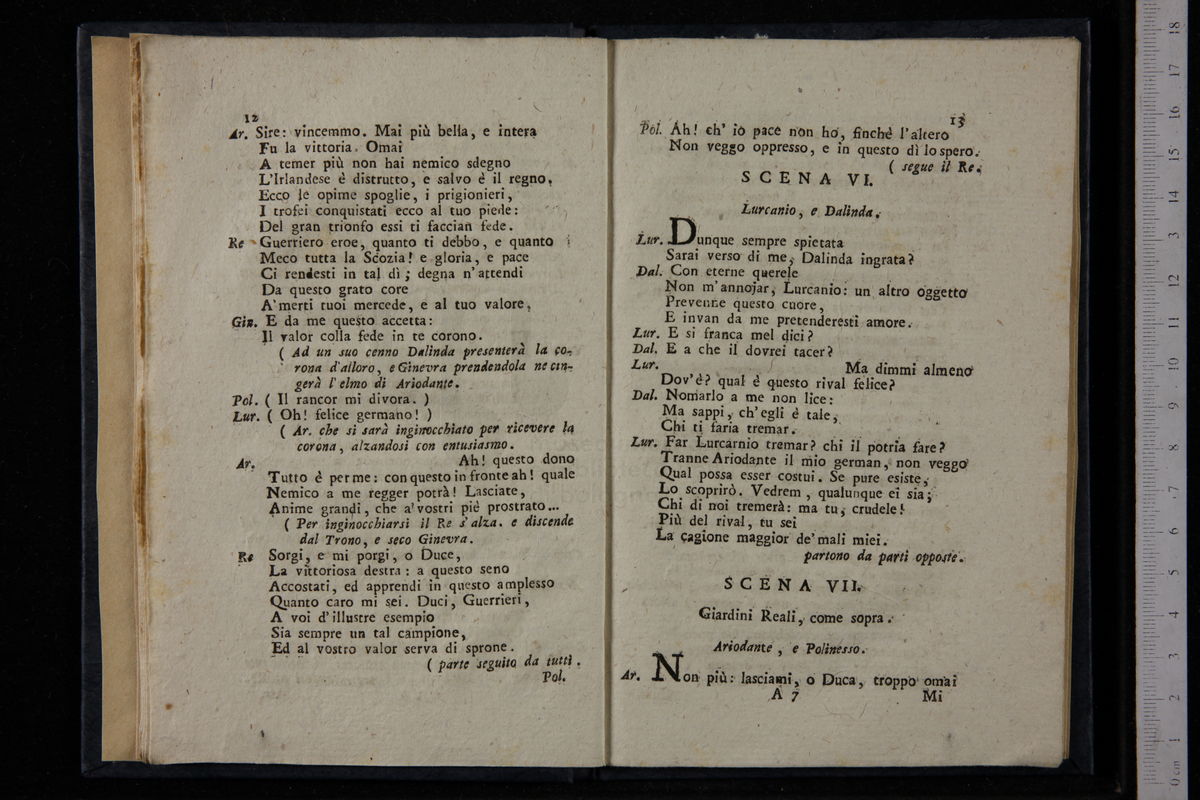 12
Ar. Sire: vincemmo. Mai più bella, e intera
Fu la vittoria. Omai
A temer più non hai nemico sdegno
L'Irlandese è distrutto, e salvo è il regno,
Ecco le opime spoglie, i prigionieri,
I trofei conquistati ecco al tuo piede:
Del gran trionfo essi ti faccian fede.
Re Guerriero eroe, quanto ti debbo, e quanto
Meco tutta la Scozia! e gloria, e pace
Ci rendesti in tal dì; degna n'attendi
Da questo grato core
A' merti tuoi mercede, e al tuo valore,
Gin. E da me questo accetta:
Il valor colla fede in te corono.
( Ad un suo cenno Dalinda presenterà la co-
rona d'alloro, e Ginevra prendendola ne cin-
gerà l'elmo di Ariodante.
Pol. ( Il rancor mi divora. )
Lur. ( Oh! felice germano! )
( Ar. che si sarà inginocchiato per ricevere la
corona, alzandosi con entusiasmo.
Ar. Ah! questo dono
Tutto è per me: con questo in fronte ah! quale
Nemico a me regger potrà! Lasciate,
Anime grandi, che a' vostri piè prostrato...
( Per inginocchiarsi il Re s'alza. e discende
dal Trono, e seco Ginevra.
Re Sorgi, e mi porgi, o Duce,
La vittoriosa destra: a questo seno
Accostati, ed apprendi in questo amplesso
Quanto caro mi sei. Duci, Guerrieri,
A voi d'illustre esempio
Sia sempre un tal campione,
Ed al vostro valor serva di sprone.
( parte seguito da tutti.
Pol.
13
Pol. Ah! ch' io pace non ho, finchè l'altero
Non veggo oppresso, e in questo dì lo spero.
( segue il Re.
SCENA VI.
Lurcanio, e Dalinda.
Lur. Dunque sempre spietata
Sarai verso di me, Dalinda ingrata?
Dal. Con eterne querele
Non m'annojar, Lurcanio: un altro oggetto
Prevenne questo cuore,
E invan da me pretenderesti amore.
Lur. E si franca mel dici?
Dal. E a che il dovrei tacer?
Lur. Ma dimmi almeno
Dov'è? qual è questo rival felice?
Dal. Nomarlo a me non lice:
Ma sappi, ch'egli è tale,
Chi ti faria tremar.
Lur. Far Lurcarnio tremar? chi il potria fare?
Tranne Ariodante il mio german, non veggo
Qual possa esser costui. Se pure esiste,
Lo scoprirò. Vedrem, qualunque ei sia;
Chi di noi tremerà: ma tu, crudele!
Più del rival, tu sei
La cagione maggior de' mali miei.
partono da parti opposte.
SCENA VII.
Giardini Reali, come sopra.
Ariodante, e Polinesso.
Ar. Non più: lasciami, o Duca, troppo omai
A 7 Mi
0 cm 1 2 3 4 5 6 7 8 9 10 11 12 3 14 15 16 17 18